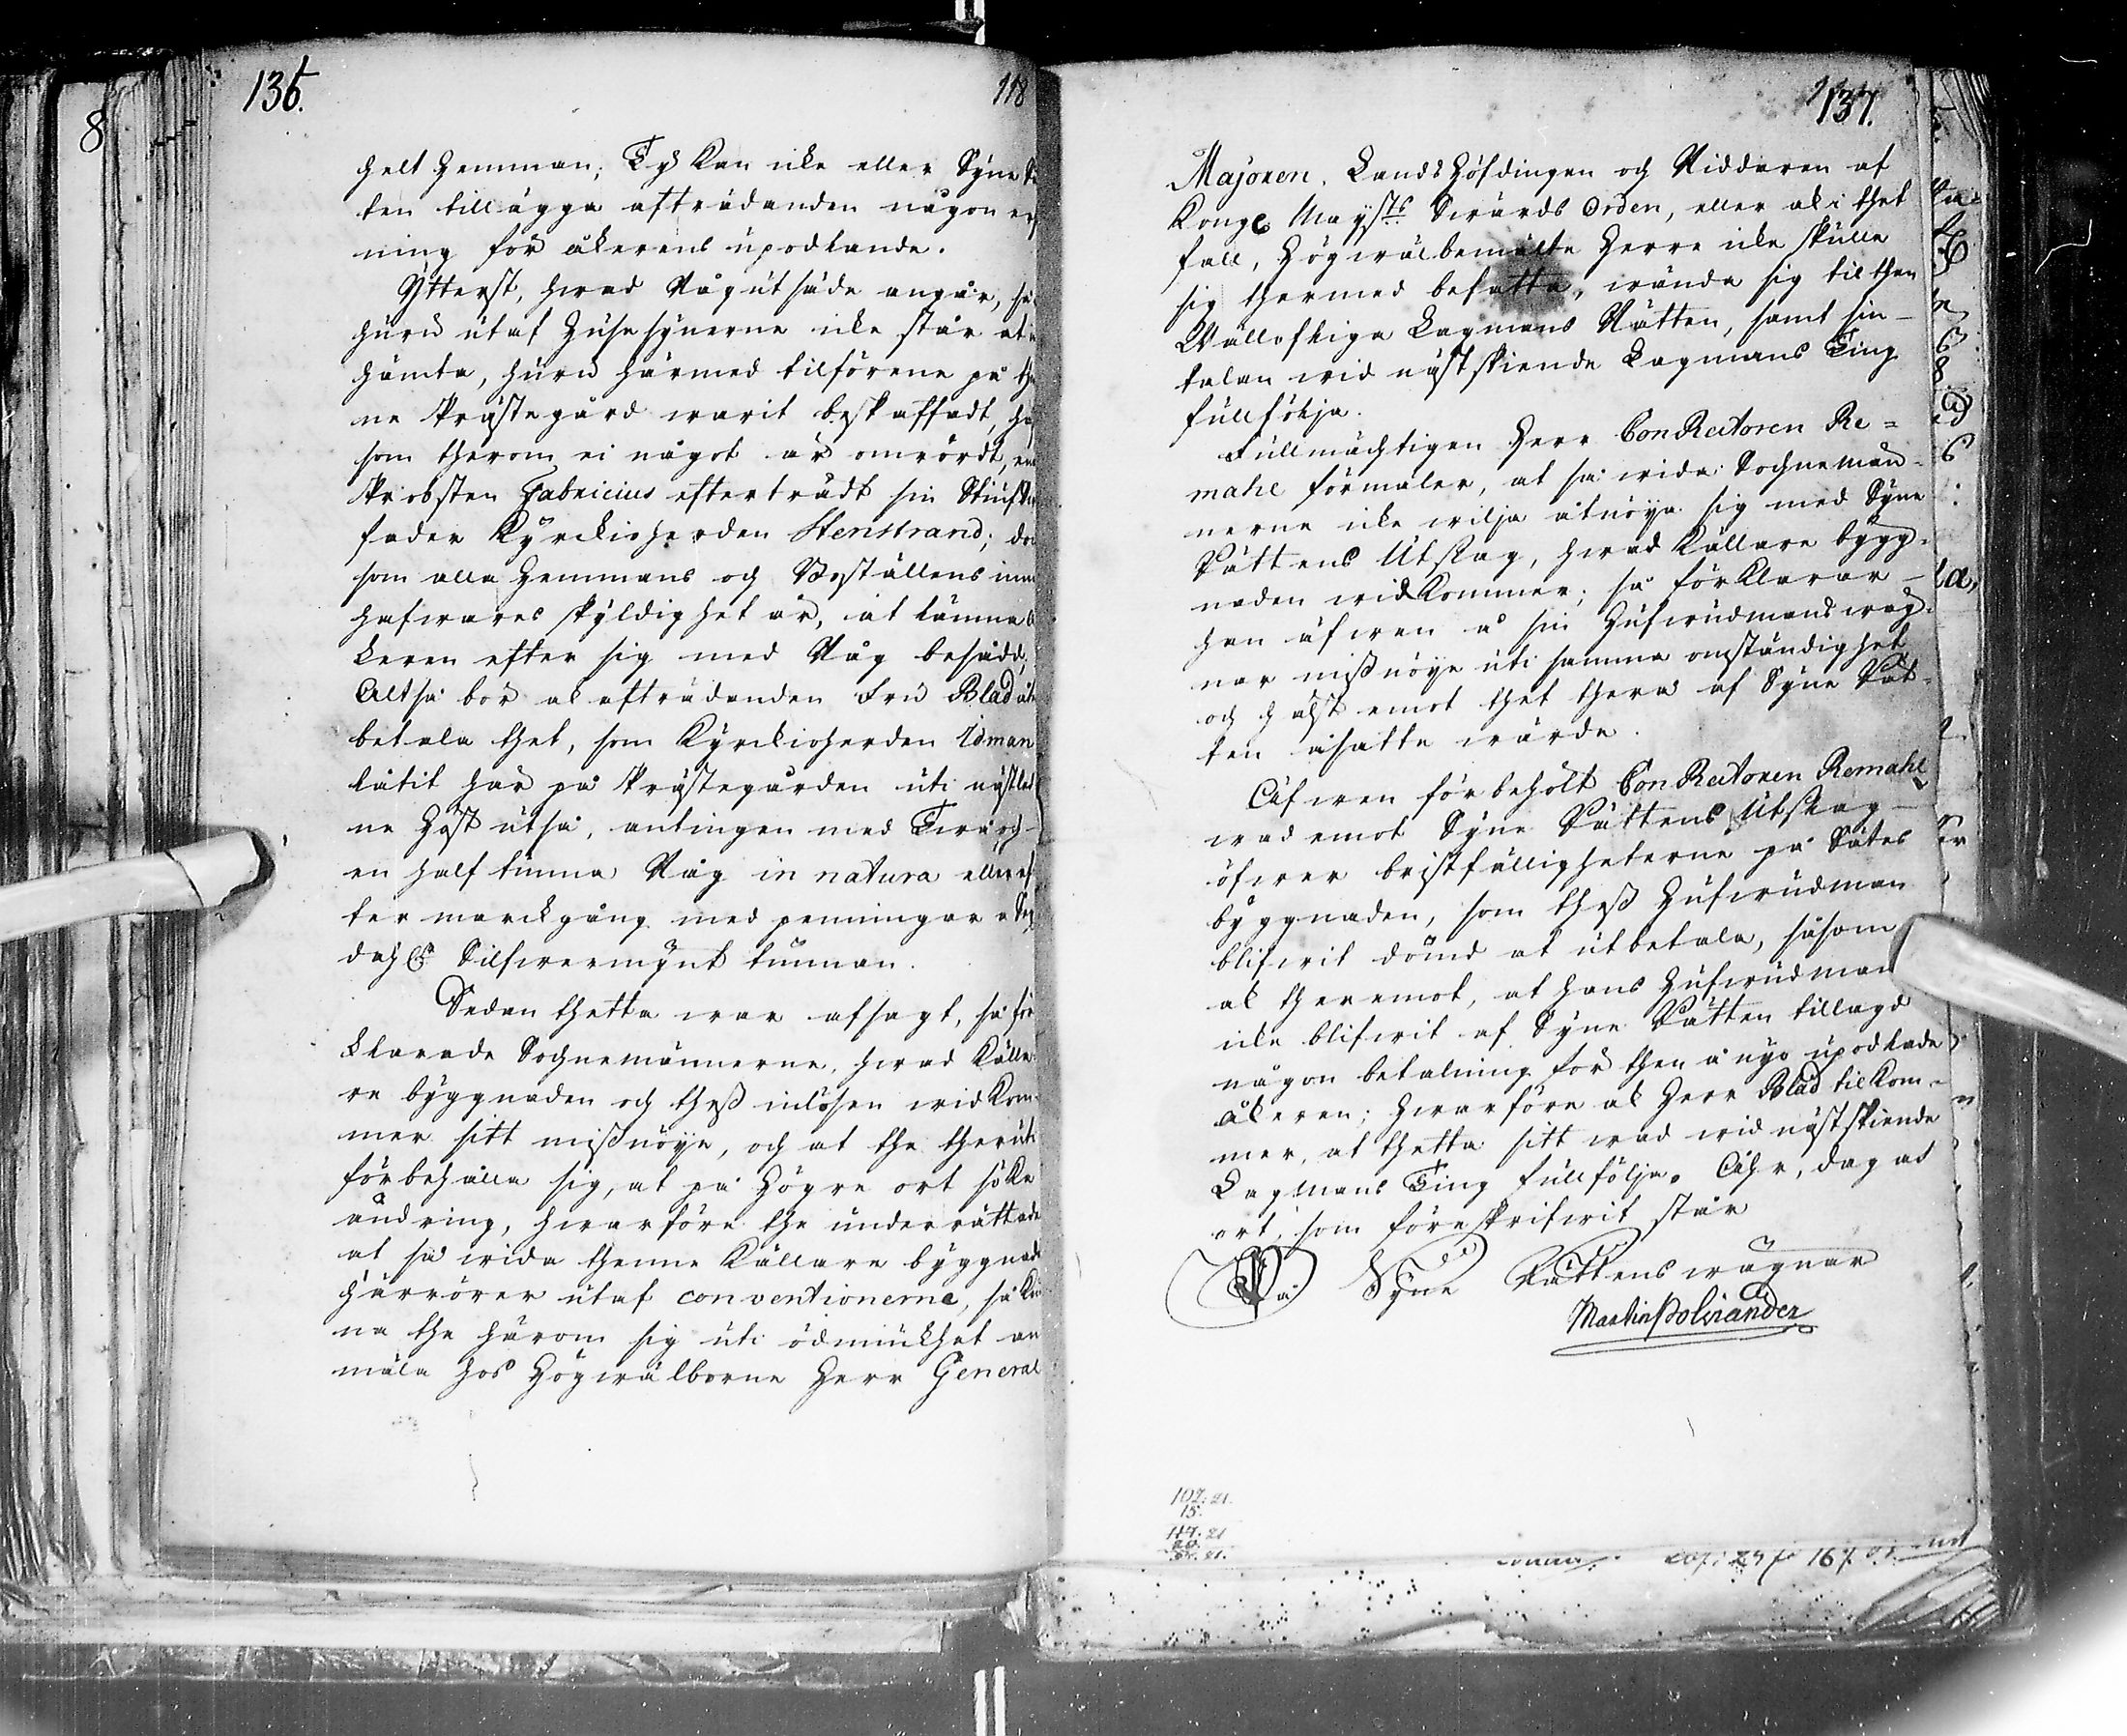 136.
118
helt hemman; Ty kan icke eller Syne Rä
ten tillägga afträdanden någon er
ning för åkerens upodlande.
Ytterst, hwad Rågutsäde angår, så
huru utaf Husesynerne icke står at in
hämta, huru härmed tilförene på then
ne Prästegård warit beskaffadt, häl
som therom ei något är omrördt, när
Probsten Fabricius efterträdt sin Stiuf
fader Kyrckioherden Stenstrand; doc
som alla hemmans och Boställens inne
hafwares skyldighet är, at lämna å
keren efter sig med Råg besådd,
Altså bör ak afträdanden Fru Blad åter
betala thet, som Kyrckioherden Idman
låtit här på Prästegården uti nästled
ne Höst utså, antingen med Twå och
en half tunna Råg in natura eller ef
ter marckgång med penningar a Sex
dahlr Silfwermynt tunnan.
Sedan thetta war afsagt, så för
klarade Sochnemännerne, hwad Källa
re byggnaden och thess inlösen widkom
mer sitt missnöye, och at the theruti
förbehålla sig, at på Högre ort söka
ändring, hwarföre the underrättades
at så wida thenne Källare byggnad
härrörer utaf conventionerne, så kun
na the härom sig uti ödmiukhet an
mäla hos Högwälborne Herr General
137.
Majoren, Landshöfdingen och Riddaren af
Kongl Mayts Swärds Orden, eller ak i thet
fall, Högwälbemälte Herre icke skulle
sig thermed befatta, wända sig til then
Wällofliga Lagmans Rätten, samt sin
talan wid nästskiende Lagmans Ting
fullfölja.
Fullmächtigen Herr ConRectoren Re=
mahl förmäler, at så wida Sochnemän=
nerne icke wilja åtnöya sig med Syne
Rättens Utslag, hwad Källare bygg=
naden widkommer; så förklarar
han äfwen å sin Hufwudmans wäg=
nar missnöye uti samma omständighet,
och hälst emot thet thera af Syne Rät=
ten åsatte wärde.
Äfwen förbeholt ConRectoren Remahl
wad emot Syne Rättens Utslag
öfwer bristfälligheterne på Sätes
byggnaden, som thess Hufwudman
blifwit dömd at utbetala, såsom
ak theremot, at hans Hufwudman
icke blifwit af Syne Rätten tillagd
någon betalning för then å nyo upodlade
åkeren; hwarföre ak Herr Blad tilkom=
mer, at thetta sitt wad wid nästskiende
Lagmans Ting fullfölja. Åhr, dag at
ort, som föreskrifwit står
På Syne Rättens wägnar
Martin Polviander
107: 21.
15.
117. 21